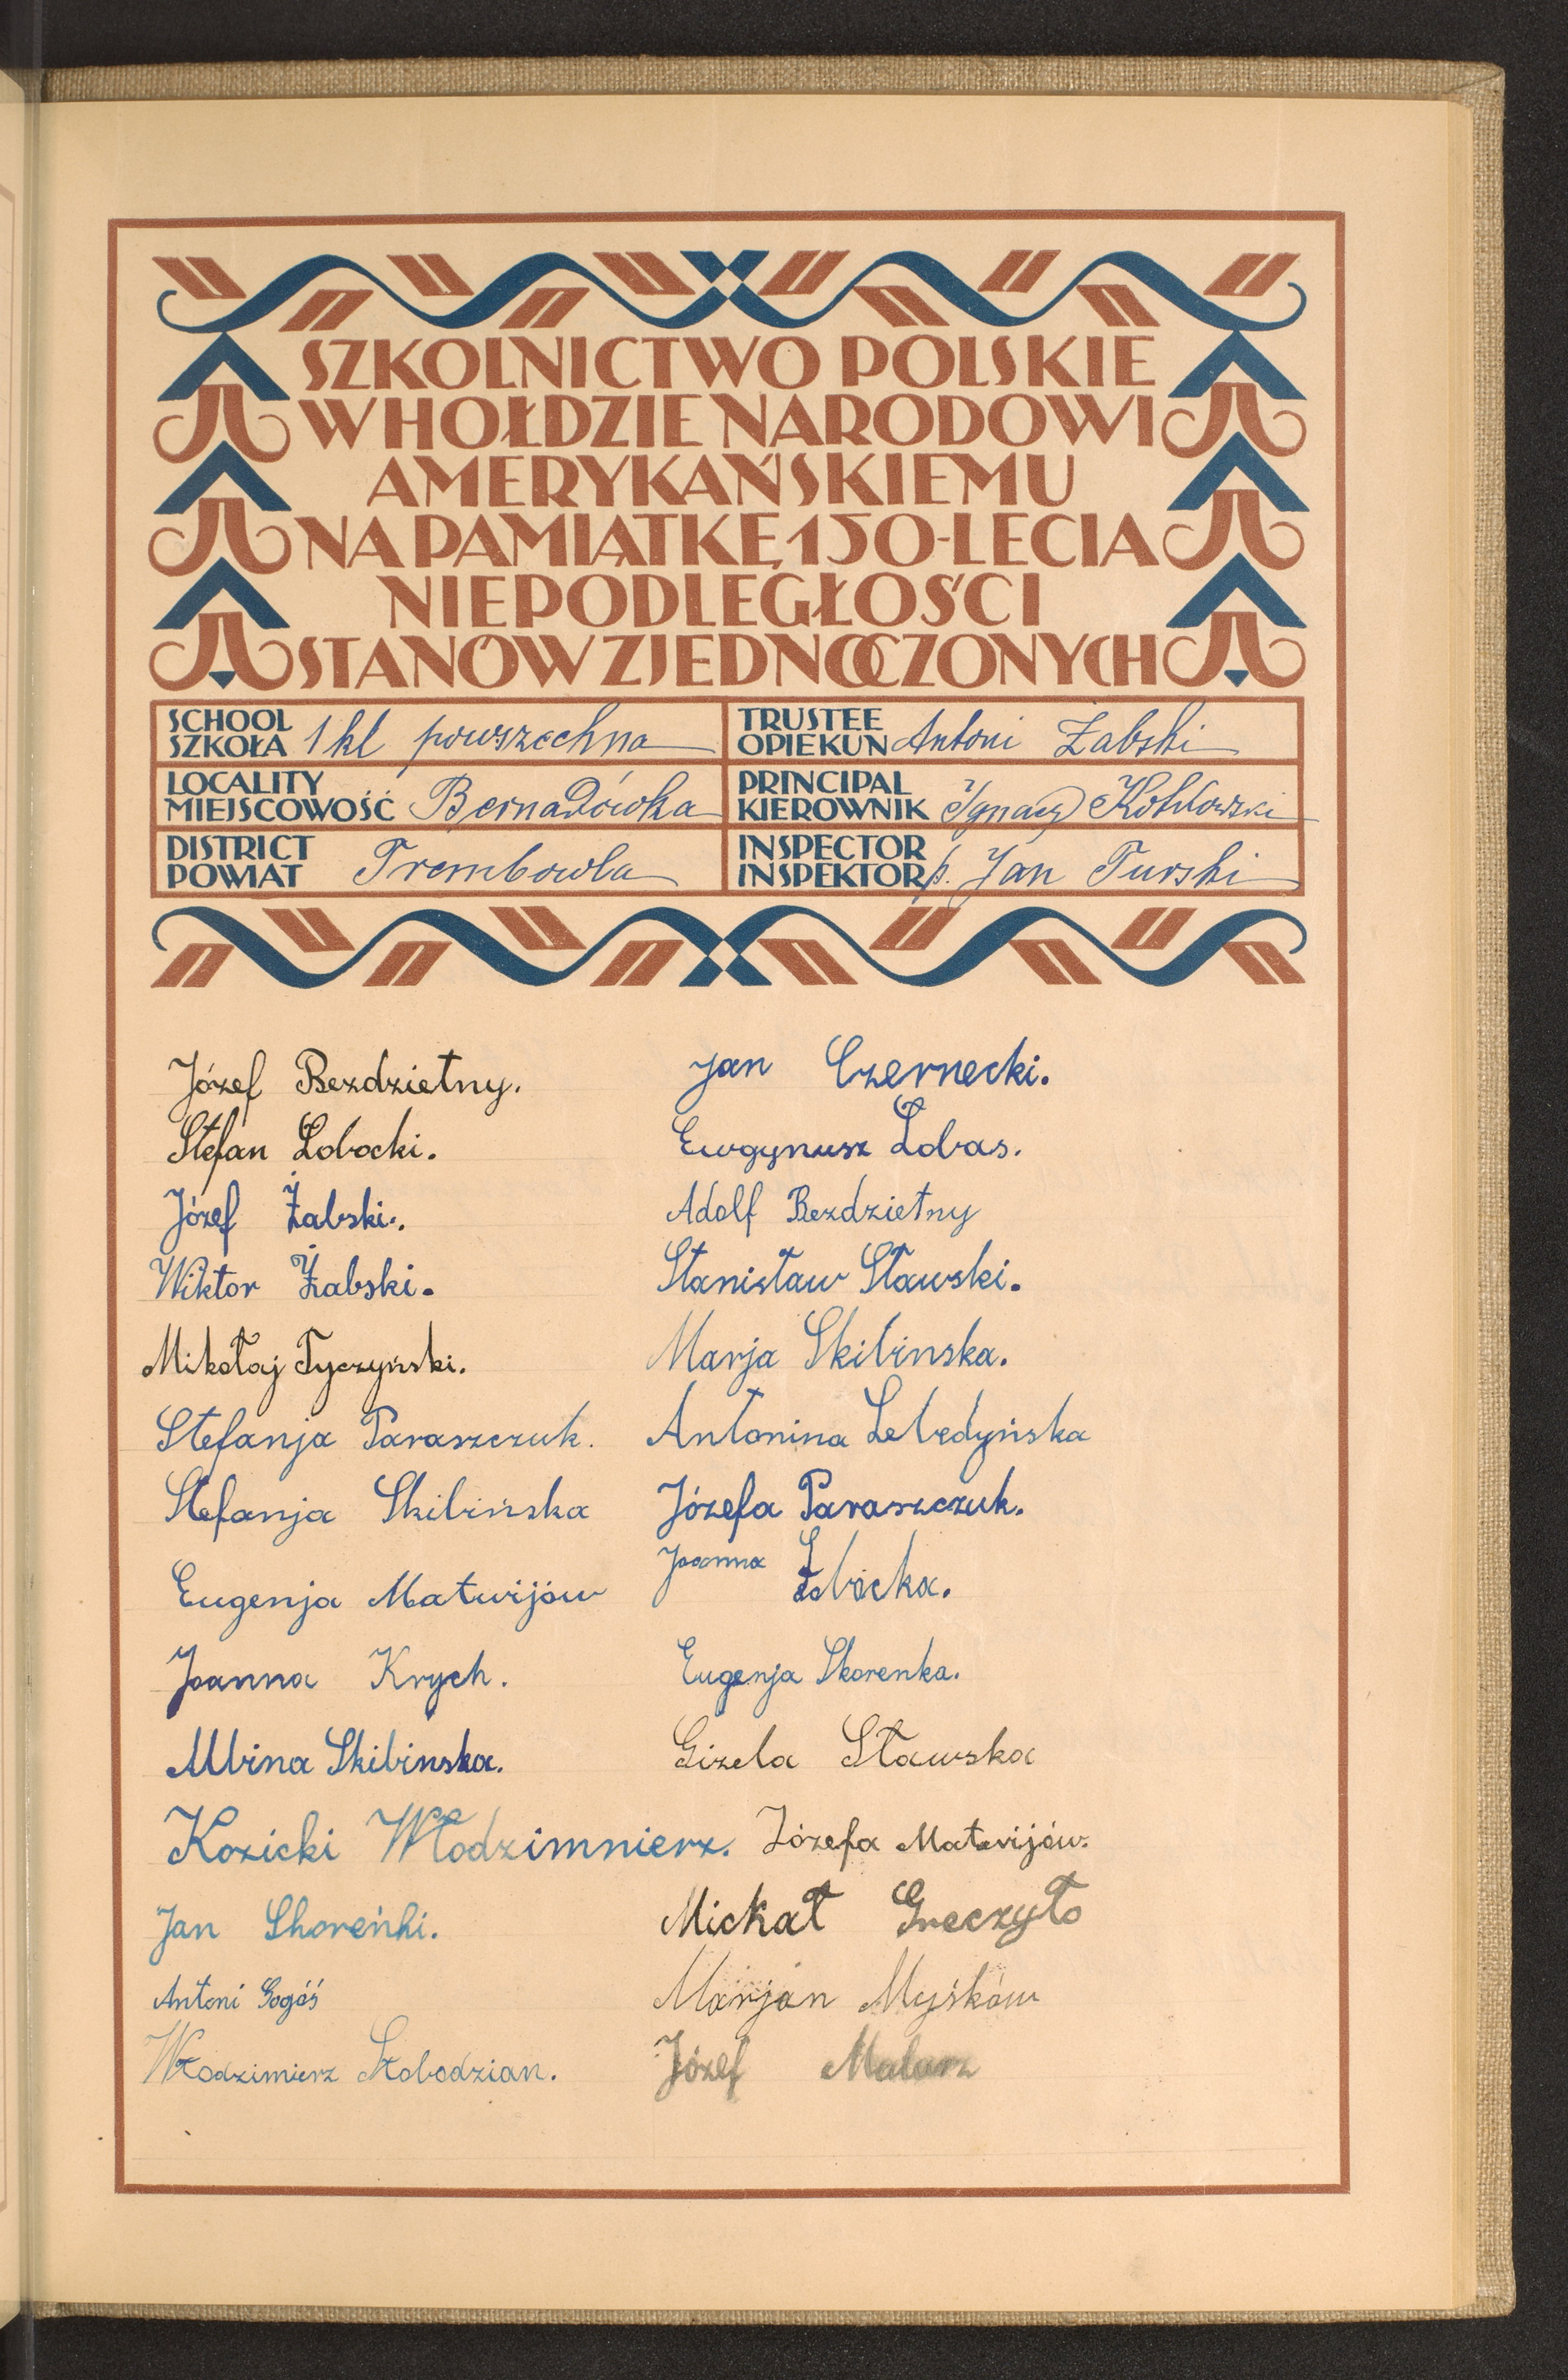 SZKOLNICTWO POLSKIE
W HOŁDZIE NARODOWI
AMERYKAŃSKIEMU
NA PAMIĄTKĘ 150-LECIA
NIEPODLEGŁOŚCI
STANÓW ZJEDNOCZONYCH
SCHOOL
SZKOŁA 1 kl powszechna
TRUSTEE
OPIEKUN Antoni Żabski
LOCALITY
MIEJSCOWOŚĆ Bernadówka
PRINCIPAL
KIEROWNIK Ignacy
DISTRICT
POWIAT Trembowla
INSPECTOR
INSPEKTOR p. Jan Turski
Józef Bezdzietny.
Stefan Łobocki.
Józef Żabski.
Wiktor Żabski.
Mikołaj Tyczyński.
Stefanja Paraszczuk.
Stefanja Skibińska
Eugenja Matwijów
Joanna Krych.
Albina Skibinska.
Kozicki Włodzimnierz.
Jan Skoreńki.
Antoni Gogóś
Włodzimierz Słobodzian.
Jan Czernecki.
Ewgynusz Łobas.
Adolf Bezdzietny
Stanisław Sławski.
Marja Skibinska.
Antonina Lebedyńska
Józefa Paraszczuk.
Joanna
Eugenja Skorenka.
Gizela Sławska
Józefa Matwijów.
Mickał Greczyło
Marjan Myśków
Józef Malarz